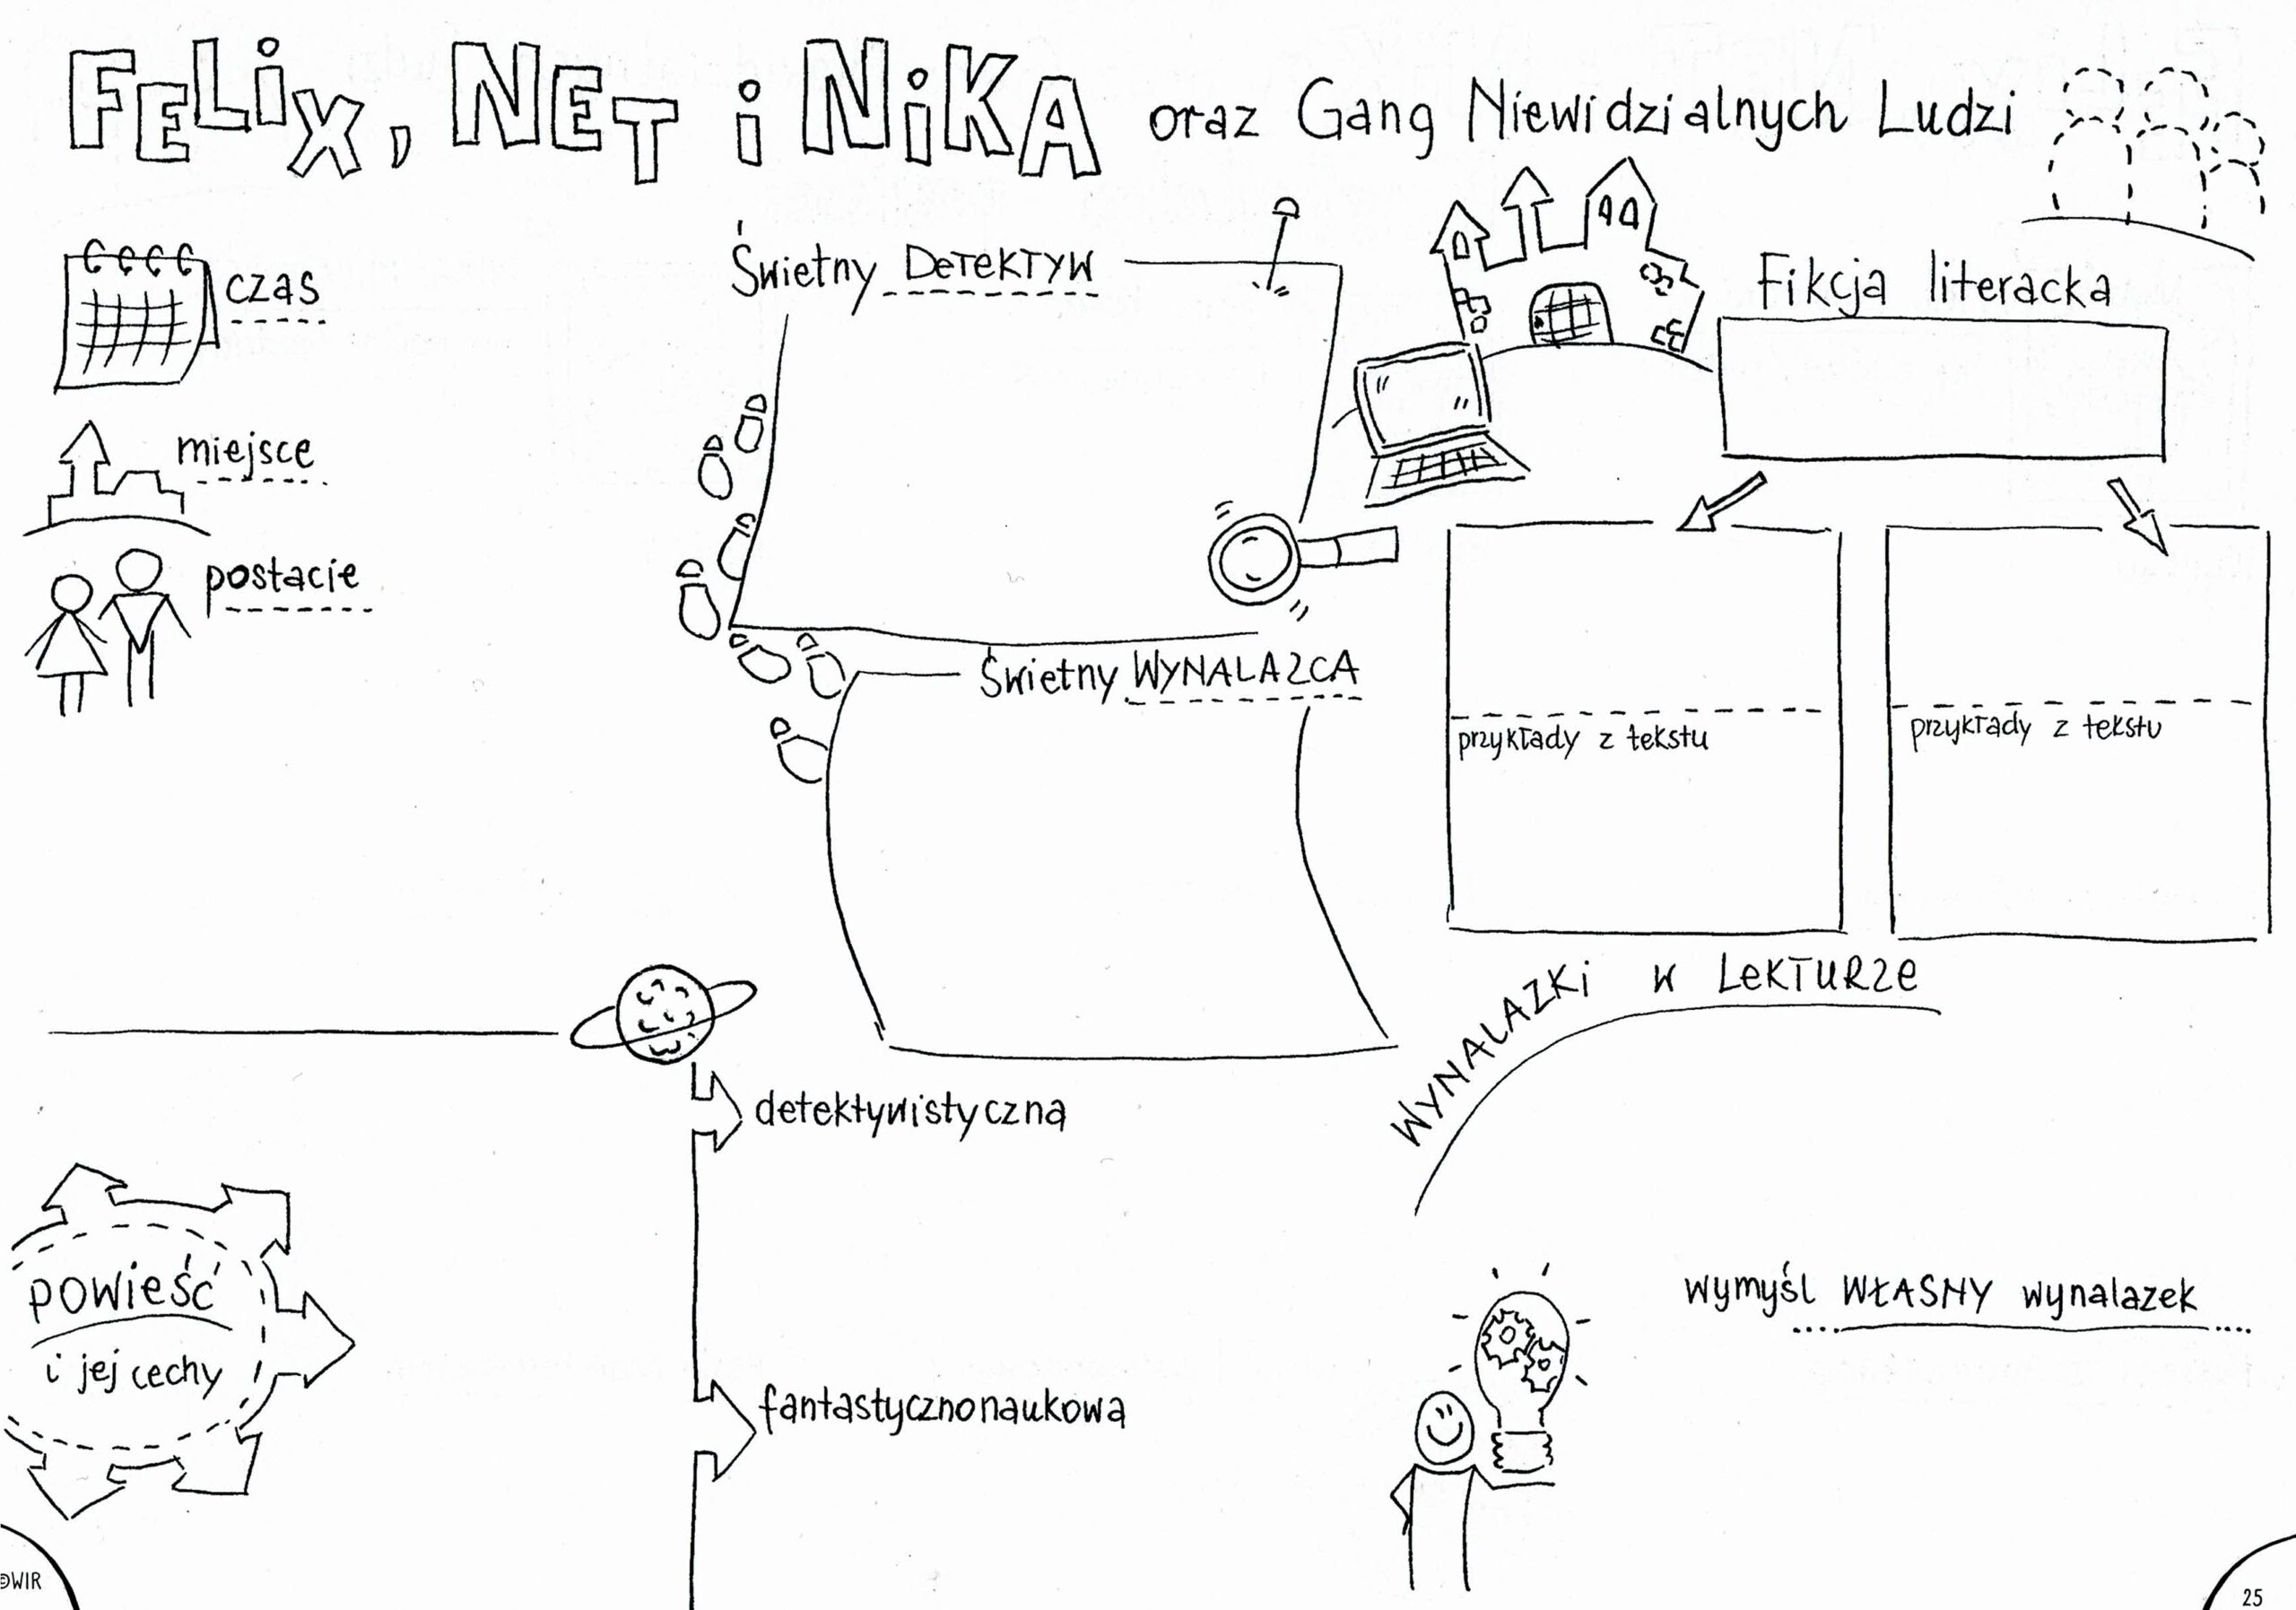 FELiX, NET i NiKA oraz Gang Niewidzialnych Ludzi
czas
miejsce
postacie
Świetny DeTeKTYW
Świetny WYNALAZCA
Fikcja literacka
przykłady z tekstu
przykłady z tekstu
WYNALAZKi w LeKTURZe
wymyśl WŁASNY wynalazek
powieść
i jej cechy
detektywistyczna
fantastycznonaukowa
©WIR
25